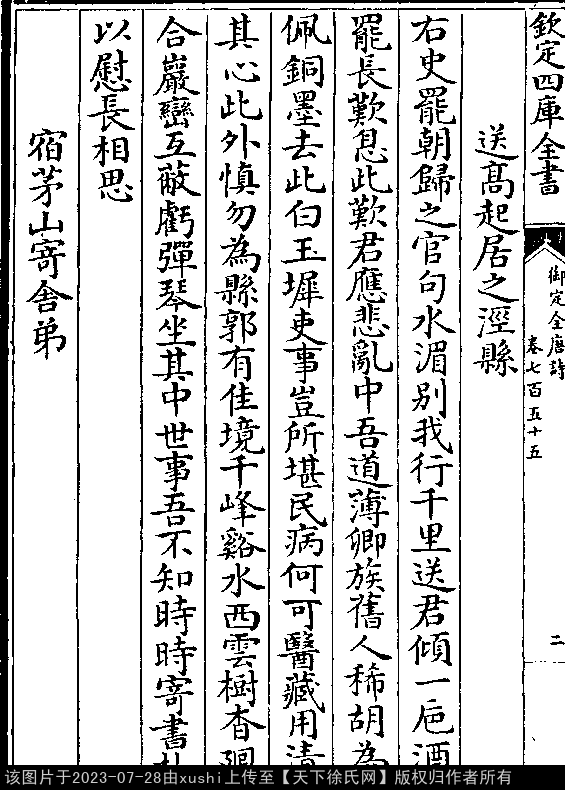 欽定四庫全書
御定全唐詩
卷七百五十五
二
送高起居之涇縣
右史罷朝歸之官句水湄别我行千里送君傾一巵酒
罷長歎息此歎君應悲亂中吾道薄卿族舊人稀胡為
佩銅墨去此白玉墀吏事豈所堪民病何可醫藏用清
其心此外慎勿為縣郭有佳境千峰谿水西雲樹杳迴
合巖巒互蔽虧彈琴坐其中世事吾不知時時寄書札
以慰長相思
宿茅山寄舍弟
该图片于2023-07-28由xushi上传至【天下徐氏网】版权归作者所有